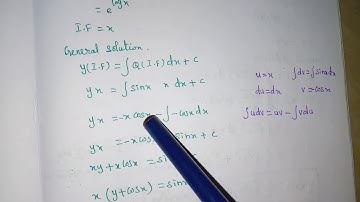 = e^logx
I.F = x
General solution.
y(I.F) = ∫ Q(I.F) dx + c
yx = ∫ sinx x dx + c
yx = -x cosx - ∫ -cosx dx
yx = -x cos sinx + c
xy + x cosx = sin
x (y + cosx) = sin
u = x ∫dv = ∫sinx dx
du = dx v = cosx
∫udv = uv - ∫vdu